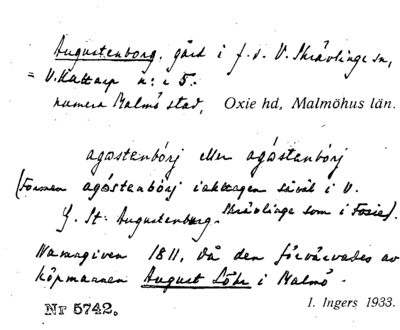 Augustenborg, gård i f. d. V. Skrävlinge sn,
= V. Kattarp n:i 5.
numera Malmö stad, Oxie hd, Malmöhus län.
agóstenbórj eller agóstenbórj
(Formen agóstenbórj iakttagen såväl i V.
Skrävlinge som i Fosie).
Y. St. Augustenburg.
Namngiven 1811, då den förvärvades av
köpmannen August Löhr i Malmö.
Nr 5742.
I. Ingers 1933.